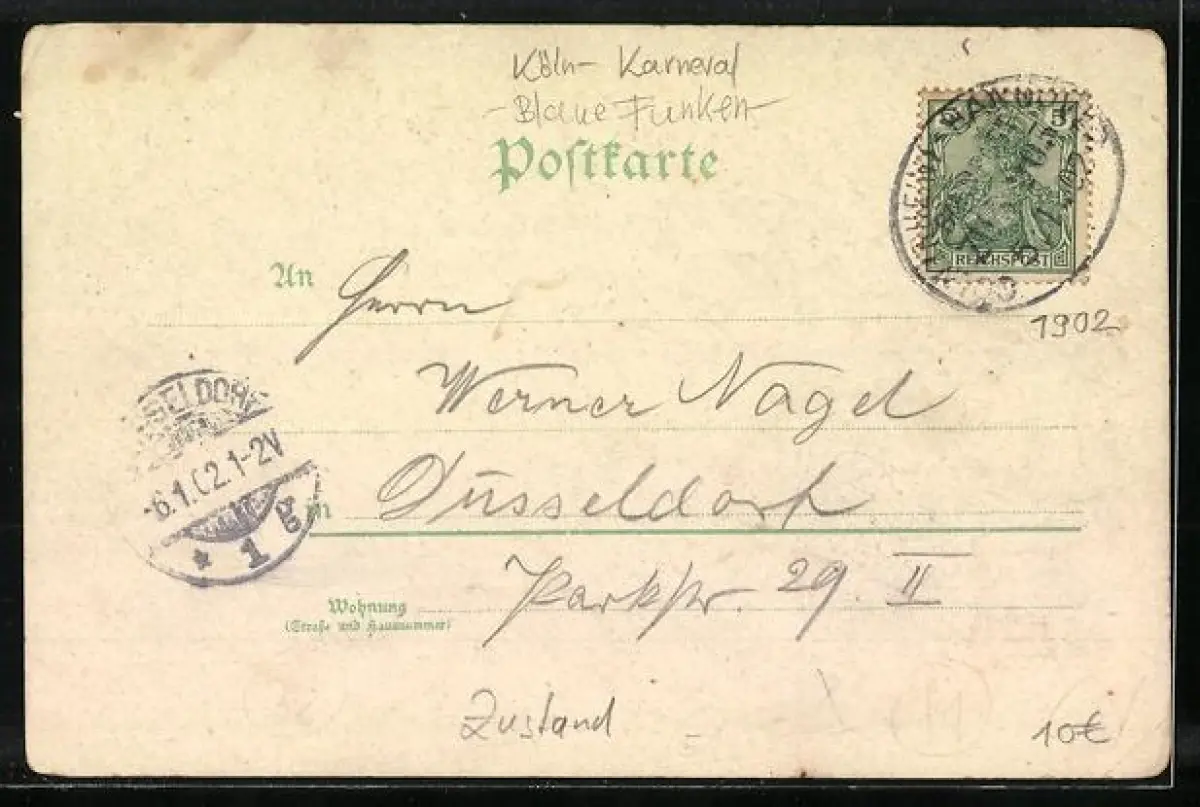 Köln- Karneval
- Blaue Funken -
Postkarte
5
REICHSPOST
1902
An Herrn
Werner Nagel
in Düsseldorf
Parkstr. 29. II
Wohnung
(Straße und Hausnummer)
6.1.02.1-2V
* 1
Zustand
10€